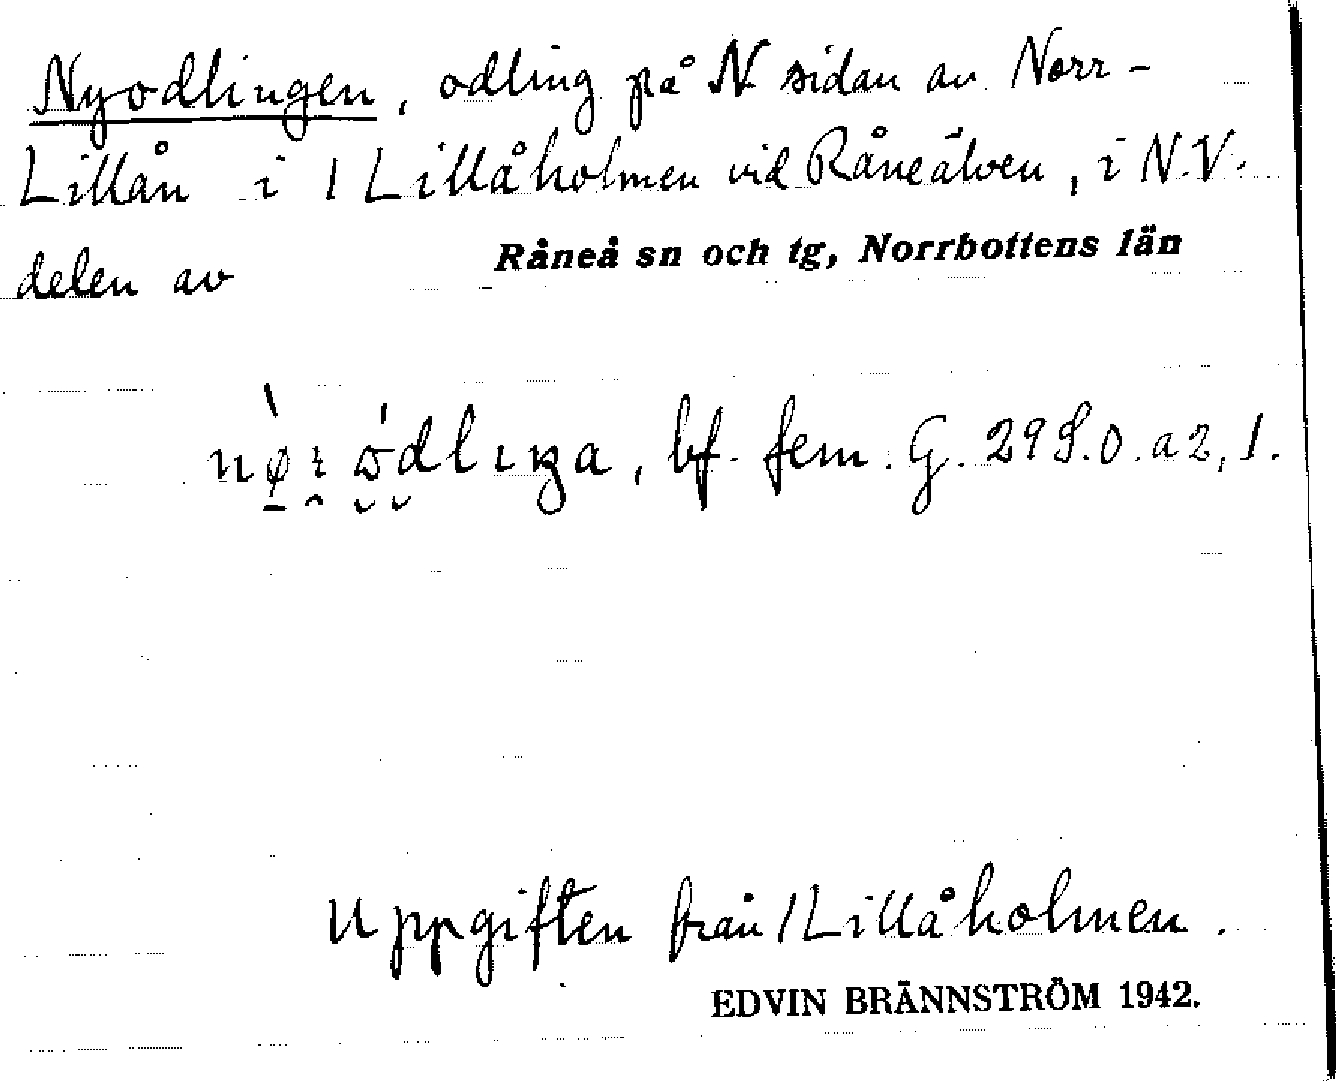 Nyodlingen, odling på N sidan av Norr-
Lillån i 1 Lillåholmen vid Råneälven, i N.V.
delen av Råneå sn och tg, Norrbottens län
bf. fem. G. 29 S.O. a2, 1.
Uppgiften från 1 Lillåholmen.
EDVIN BRÄNNSTRÖM 1942.